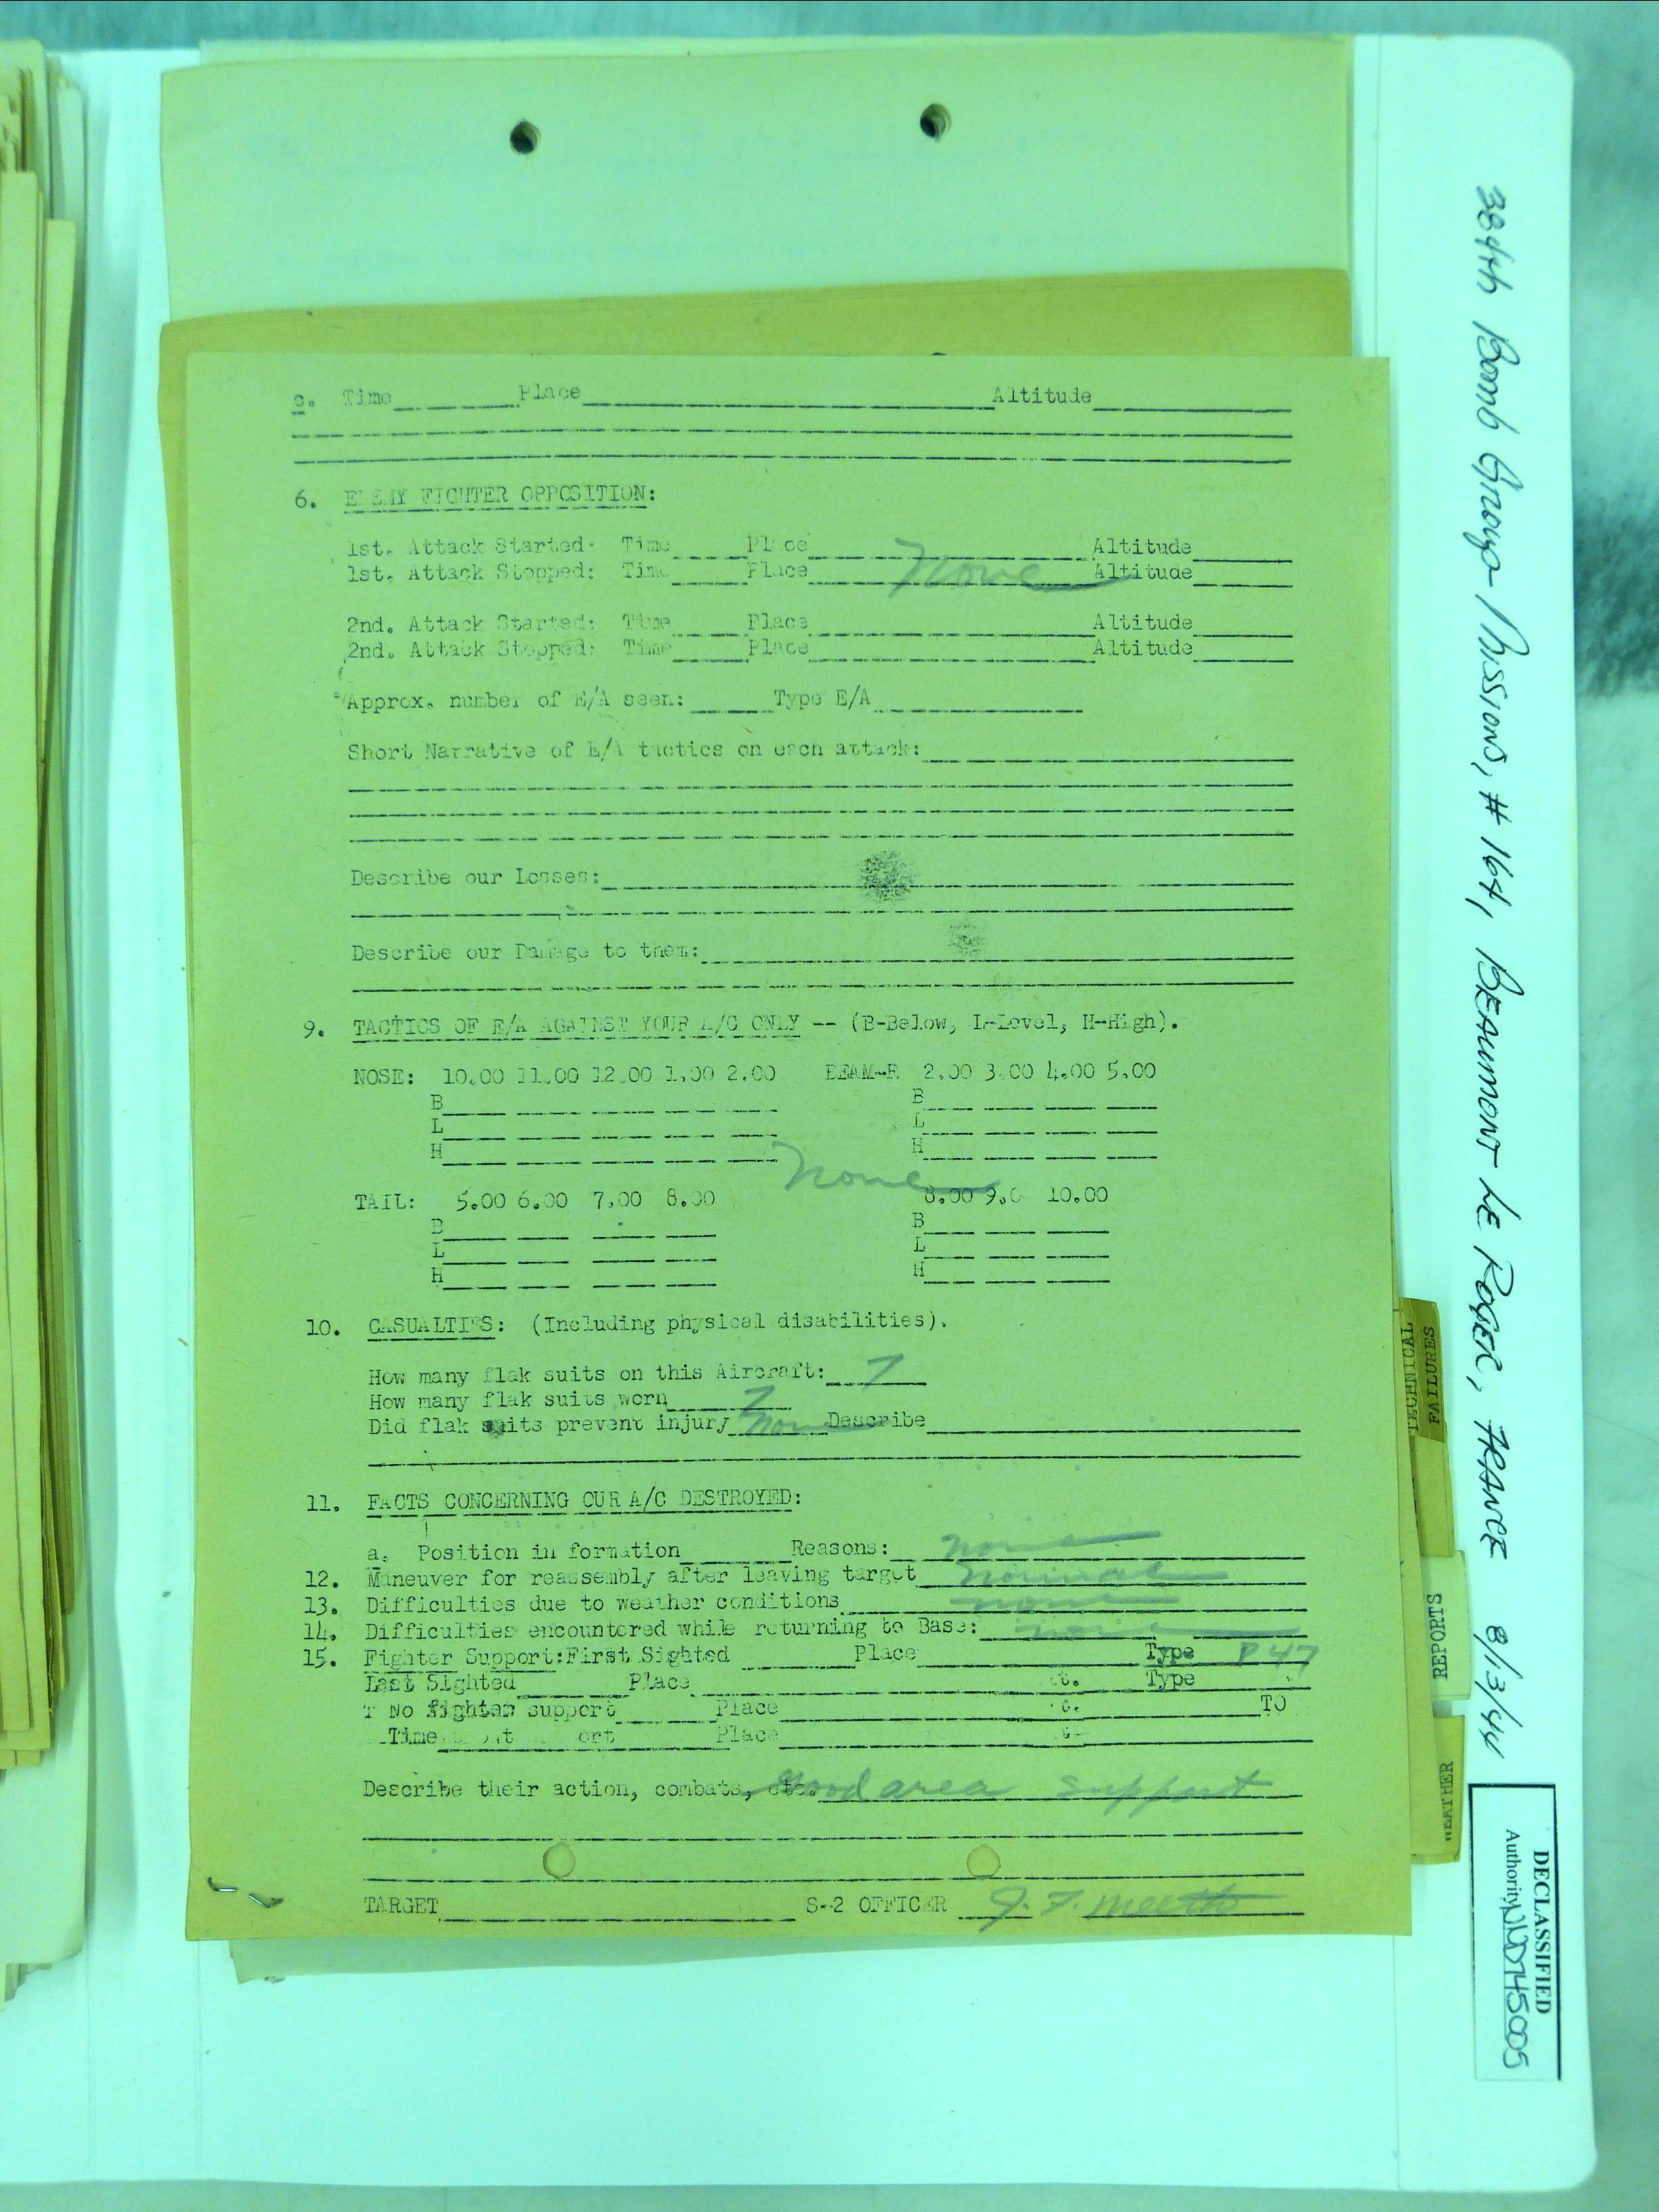 c. Time Place Altitude
6. ENEMY FIGHTER OPPOSITION:
1st. Attack Started: Time Place Altitude
1st. Attack Stopped: Time Place None Altitude
2nd. Attack Started: Time Place Altitude
2nd. Attack Stopped: Time Place Altitude
Approx. number of E/A seen: Type E/A
Short Narrative of E/A tactics on each attack:
Describe our Losses:
Describe our Damage to them:
9. TACTICS OF E/A AGAINST YOUR A/C ONLY -- (B-Below, L-Level, H-High).
NOSE: 10.00 11.00 12.00 1.00 2.00 BEAM-R 2.00 3.00 4.00 5.00
B B
L L
H H
None
TAIL: 5.00 6.00 7.00 8.00 8.00 9.0 10.00
B B
L L
H H
10. CASUALTIES: (Including physical disabilities).
How many flak suits on this Aircraft: 7
How many flak suits worn 7
Did flak suits prevent injury None Describe
11. FACTS CONCERNING OUR A/C DESTROYED:
a. Position in formation Reasons: None
12. Maneuver for reassembly after leaving target Normal
13. Difficulties due to weather conditions none
14. Difficulties encountered while returning to Base: none
15. Fighter Support: First Sighted Place Type P 47
Last Sighted Place t. Type
No fighter support Place TO
Time ort Place
Describe their action, combats, etc. Good area support
TARGET S-2 OFFICER
384th Bomb Group Missions, # 164, BEAUMONT LE ROGER, FRANCE 8/13/44
TECHNICAL
FAILURES
REPORTS
WEATHER
DECLASSIFIED
Authority NND745005